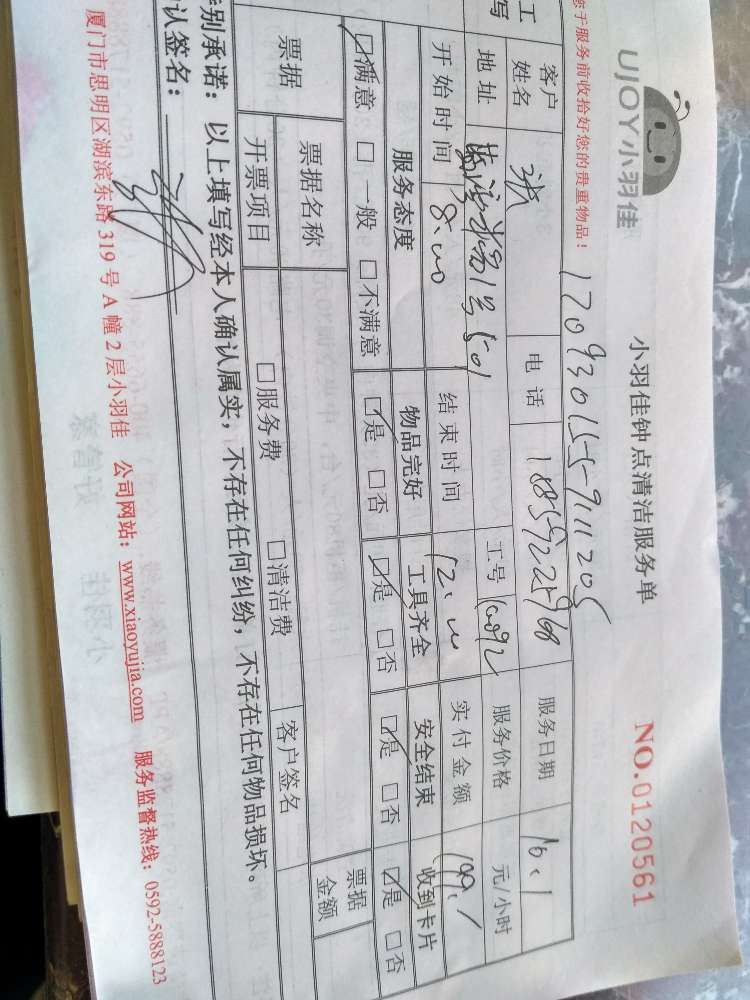 UJOY小羽佳
小羽佳钟点清洁服务单
NO.0120561
您于服务前收拾好您的贵重物品！
170930155911205
工
写
客户
姓名
张
电话
服务日期
10.1
地址
1号501
工号
服务价格
元/小时
开始时间
8:00
结束时间
12:00
实付金额
199.1
服务态度
物品完好
工具齐全
安全结束
收到卡片
☑满意 □一般 □不满意
☑是 □否
☑是 □否
☑是 □否
☑是 □否
票据
票据名称
票据
金额
开票项目
□服务费
□清洁费
客户签名
特别承诺：以上填写经本人确认属实，不存在任何纠纷，不存在任何物品损坏。
认签名：
厦门市思明区湖滨东路 319 号 A 幢 2 层小羽佳 公司网站：www.xiaoyujia.com 服务监督热线：0592-5888123